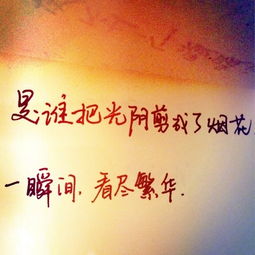 是谁把光阴剪成了烟花,
一瞬间,看尽繁华.